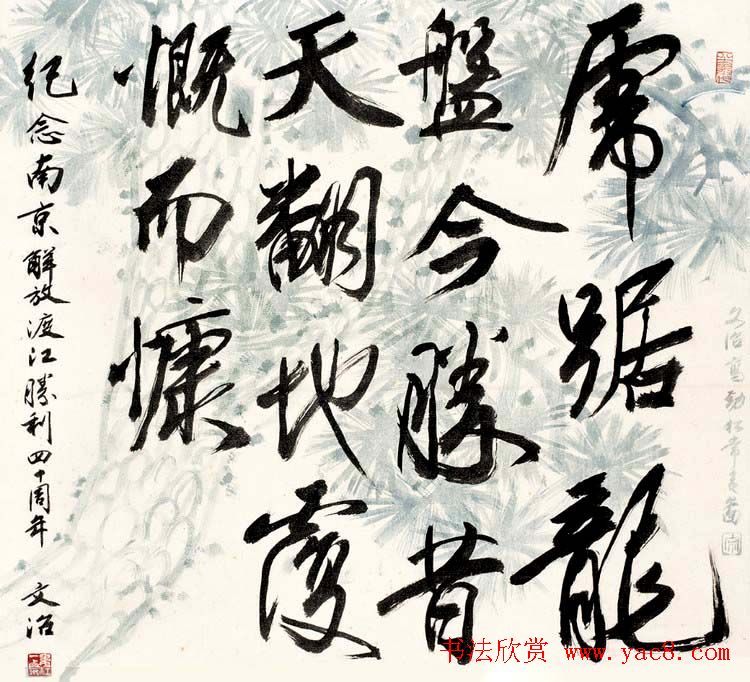 虎踞龍
盤今勝昔
天翻地覆
慨而慷
紀念南京解放渡江勝利四十周年 文治
书法欣赏 www.yac8.com